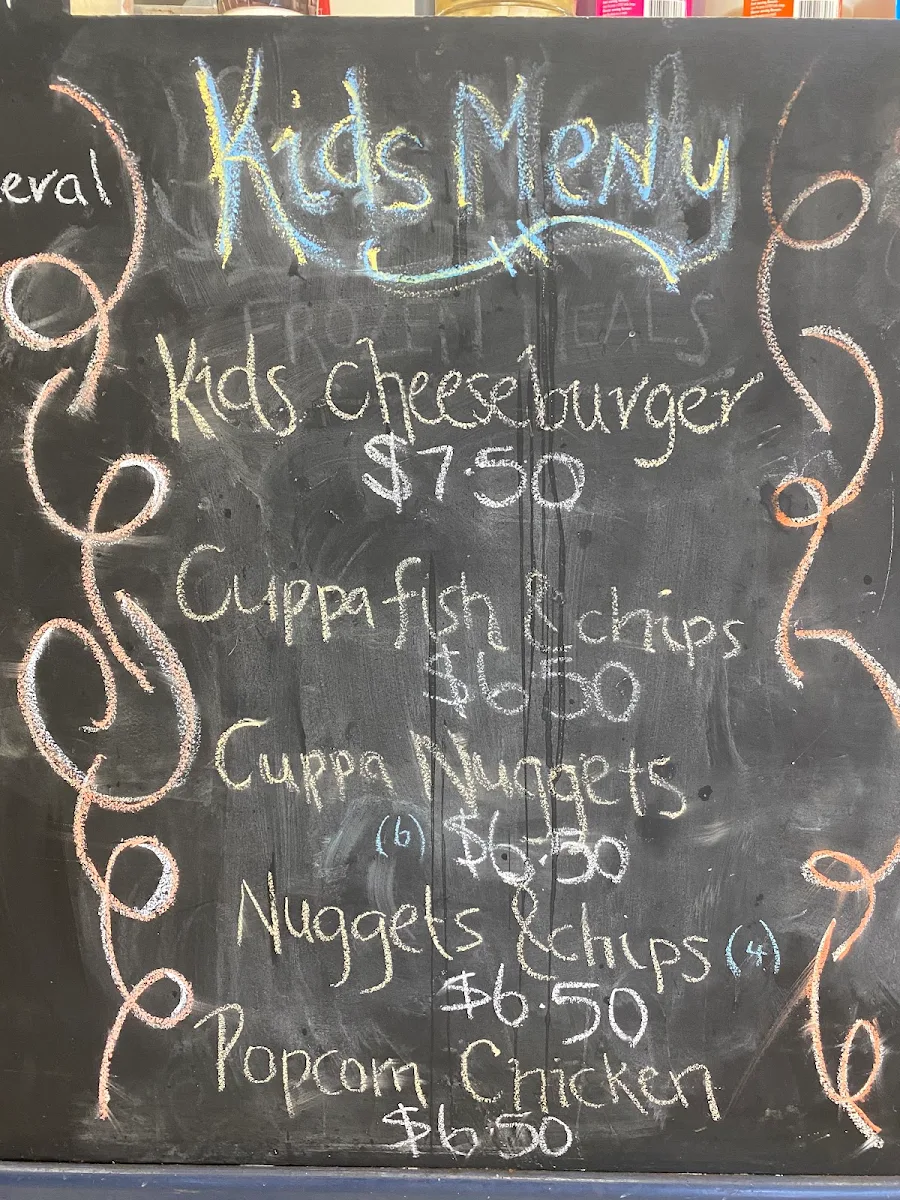 Kids Menu
eral
FROZEN MEALS
Kids Cheeseburger
$7.50
Cuppa fish & chips
$6.50
Cuppa Nuggets
(6) $6.50
Nuggets & chips (4)
$6.50
Popcorn Chicken
$6.50